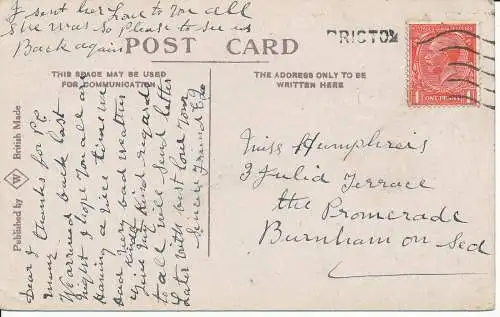 I sent her love to you all
She was so please to see us
Back again
POST CARD
BRISTOL
THIS SPACE MAY BE USED
FOR COMMUNICATION
THE ADDRESS ONLY TO BE
WRITTEN HERE
ONE PENNY
Published by W British Made
Dear J
many thanks for P.C
We arrived back last
night I hope you all are
having a nice time we
had very bad weather
give my kind regards
to all will send letter
Later with best love from
your Sincere Friend
Miss Humphreis
3 Julid Terrace
the Promerade
Burnham on Sed